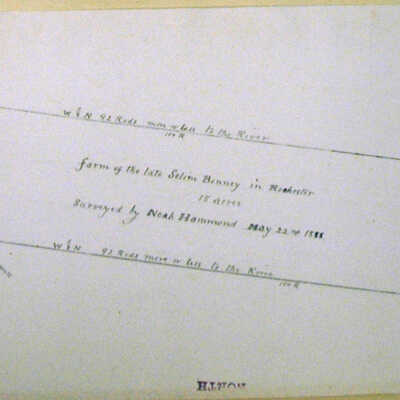 W & N 92 Rods more or less to the River
100 R
farm of the late Selim Benney in Rochester
18 acres
Surveyed by Noah Hammond May 22nd
W & N 91 Rods more or less to the River
100 R